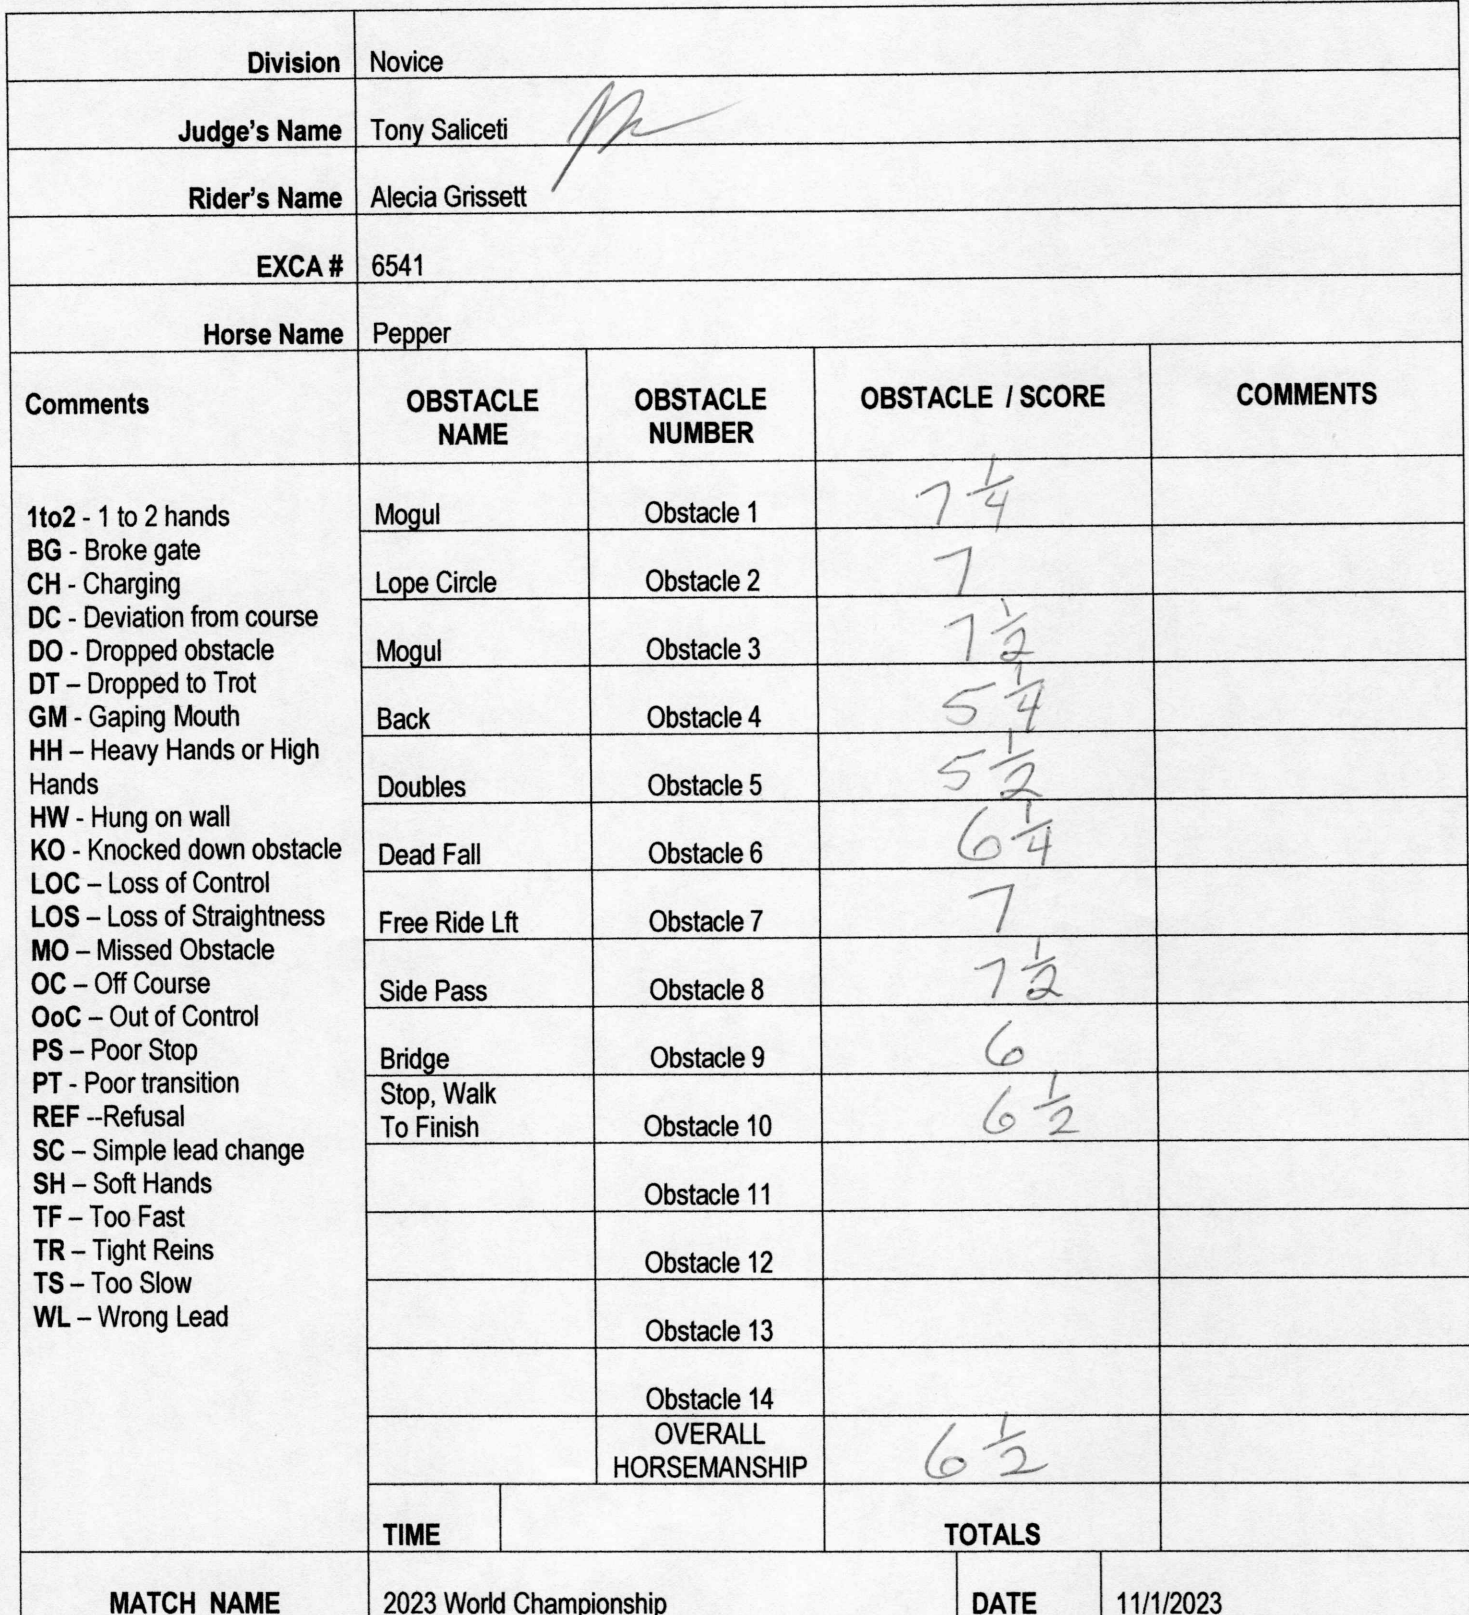 Division Novice
Judge's Name Tony Saliceti
Rider's Name Alecia Grissett
EXCA # 6541
Horse Name Pepper
Comments OBSTACLE NAME OBSTACLE NUMBER OBSTACLE / SCORE COMMENTS
1to2 - 1 to 2 hands
BG - Broke gate
CH - Charging
DC - Deviation from course
DO - Dropped obstacle
DT – Dropped to Trot
GM - Gaping Mouth
HH – Heavy Hands or High
Hands
HW - Hung on wall
KO - Knocked down obstacle
LOC – Loss of Control
LOS – Loss of Straightness
MO – Missed Obstacle
OC – Off Course
OoC – Out of Control
PS – Poor Stop
PT - Poor transition
REF --Refusal
SC – Simple lead change
SH – Soft Hands
TF – Too Fast
TR – Tight Reins
TS – Too Slow
WL – Wrong Lead
Mogul Obstacle 1 7 1/4
Lope Circle Obstacle 2 7
Mogul Obstacle 3 7 1/2
Back Obstacle 4 5 1/4
Doubles Obstacle 5 5 1/2
Dead Fall Obstacle 6 6 1/4
Free Ride Lft Obstacle 7 7
Side Pass Obstacle 8 7 1/2
Bridge Obstacle 9 6
Stop, Walk
To Finish Obstacle 10 6 1/2
Obstacle 11
Obstacle 12
Obstacle 13
Obstacle 14
OVERALL
HORSEMANSHIP 6 1/2
TIME TOTALS
MATCH NAME 2023 World Championship DATE 11/1/2023